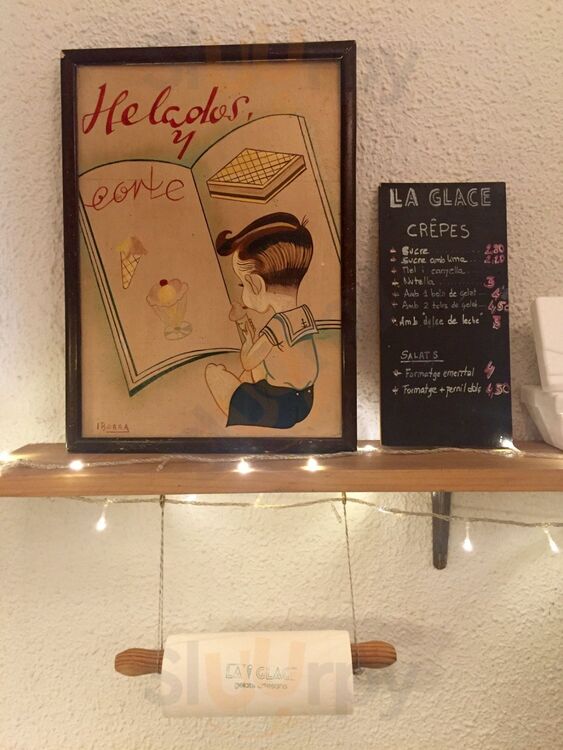 Helados,
y
corte
IBORRA
LA GLACE
CRÊPES
Sucre 2,80
Sucre amb llima
Mel i canyella
Nutella 3
Amb 1 bola de gelat 4
Amb 2 boles de gelat 4,50
Amb "dolce de leche" 3
SALATS
Formatge emental 4
Formatge + pernil dolç 4,50
LA GLACE
gelats artesans